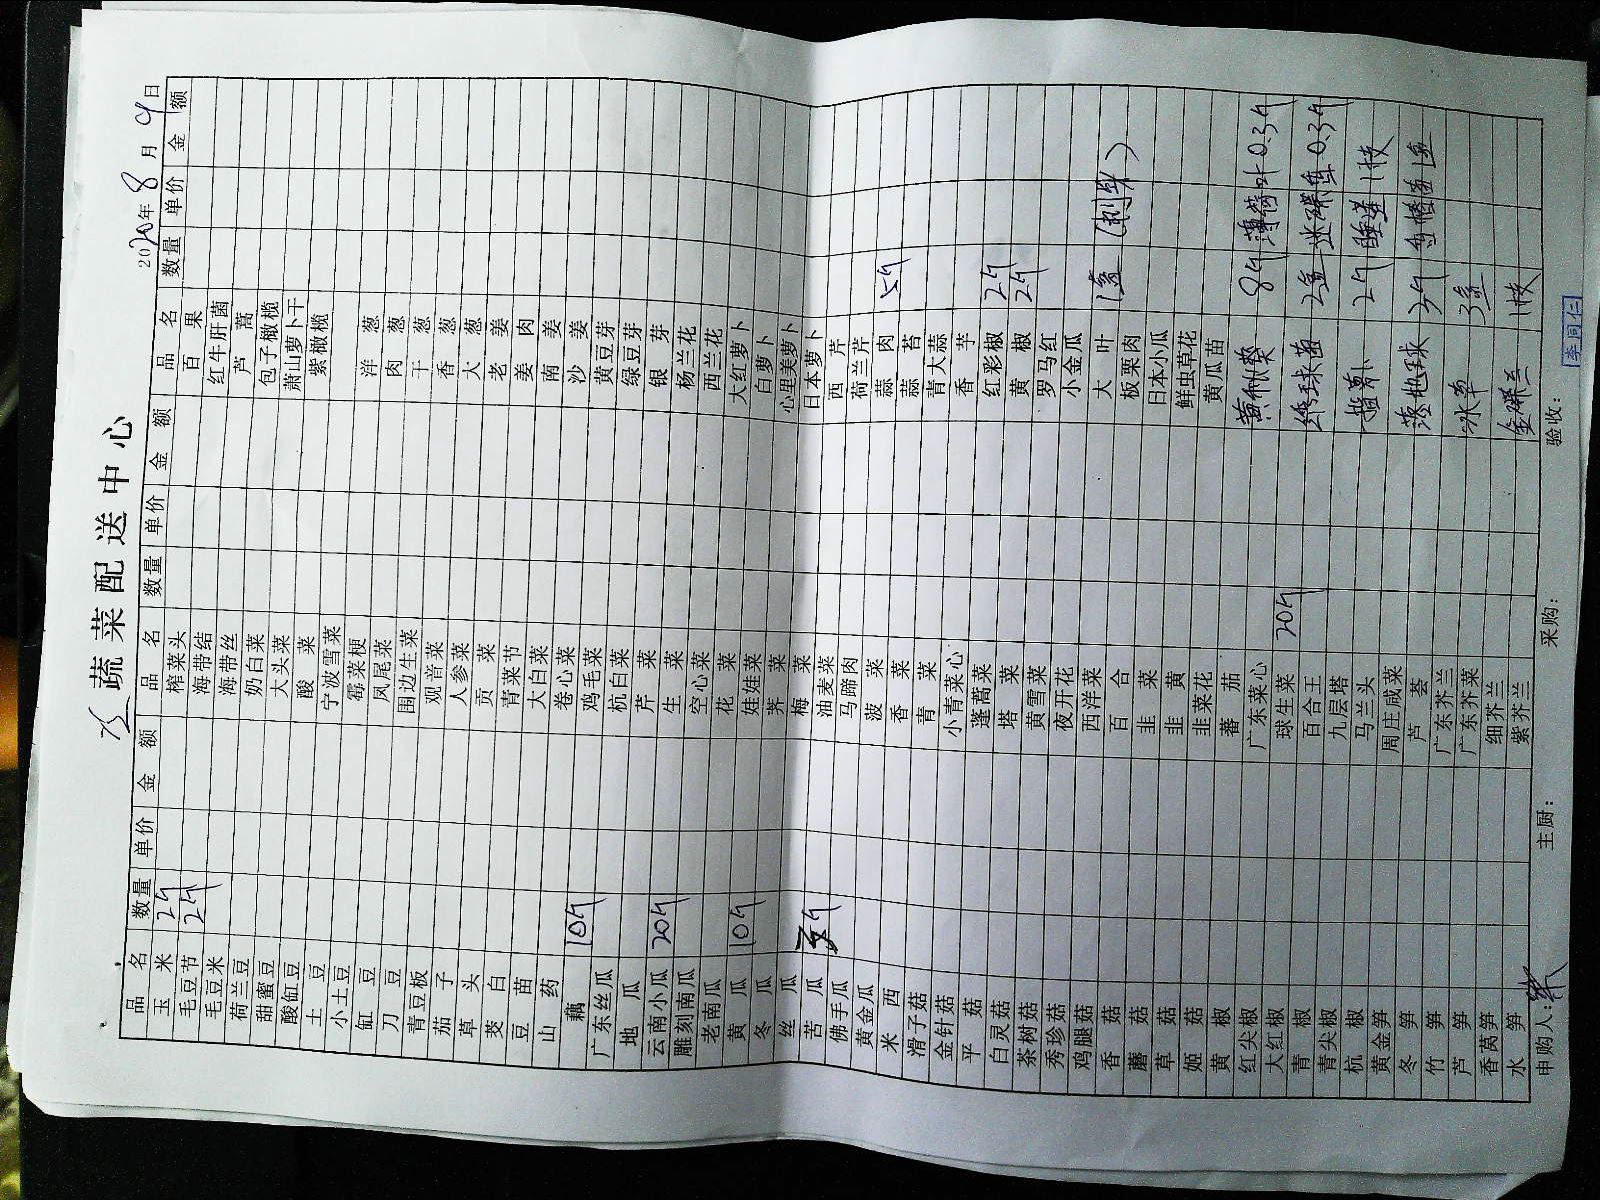 蔬菜配送中心
2020年8月9日
品名 数量 单价 金额 品名 数量 单价 金额 品名 数量 单价 金额
玉米 2斤 榨菜头 百果
毛豆节 2斤 海带结 红牛肝菌
毛豆米 海带丝 芦蒿
荷兰豆 奶白菜 包子橄榄
甜蜜豆 大头菜 萧山萝卜干
酸缸豆 酸菜 紫橄榄
土豆 宁波雪菜
小土豆 霉菜梗 洋葱
缸豆 凤尾菜 肉葱
刀豆 围边生菜 干葱
青豆板 观音菜 香葱
茄子 人参菜 大葱
草头 贡菜 老姜
茭白 青菜节 姜肉
豆苗 大白菜 南姜
山药 卷心菜 沙姜
藕 10斤 鸡毛菜 黄豆芽
广东丝瓜 杭白菜 绿豆芽
地瓜 芹菜 银芽
云南小瓜 20斤 生菜 杨兰花
雕刻南瓜 空心菜 西兰花
老南瓜 花菜 大红萝卜
黄瓜 10斤 娃娃菜 白萝卜
冬瓜 荠菜 心里美萝卜
丝瓜 梅菜 日本萝卜
苦瓜 5斤 油麦菜 西芹
佛手瓜 马蹄肉 荷兰芹
黄金瓜 菠菜 蒜肉 5斤
米西 香菜 蒜苔
滑子菇 青菜 青大蒜
金针菇 小青菜心 香芋
平菇 蓬蒿菜 红彩椒 2斤
白灵菇 塔菜 黄椒 2斤
茶树菇 黄雪菜 罗马红
秀珍菇 夜开花 小金瓜
鸡腿菇 西洋菜 大叶 1盒 (刺身)
香菇 百合 板栗肉
蘑菇 韭菜 日本小瓜
草菇 韭黄 鲜虫草花
姬菇 韭菜花 黄瓜苗
黄椒 蕃茄
红尖椒 广东菜心 黄秋葵 8斤 薄荷叶 0.3斤
大红椒 球生菜 20斤
青椒 百合王 绣球菌 2盒 0.3斤
青尖椒 九层塔
杭椒 马兰头 2斤 睡莲 1枝
黄金笋 周庄咸菜
冬笋 芦荟 3斤 1盒
竹笋 广东芥兰
芦笋 广东芥菜 冰草 3盒
香莴笋 细芥兰
水笋 紫芥兰 1枝
申购人: 主厨: 采购: 验收: 李同仁